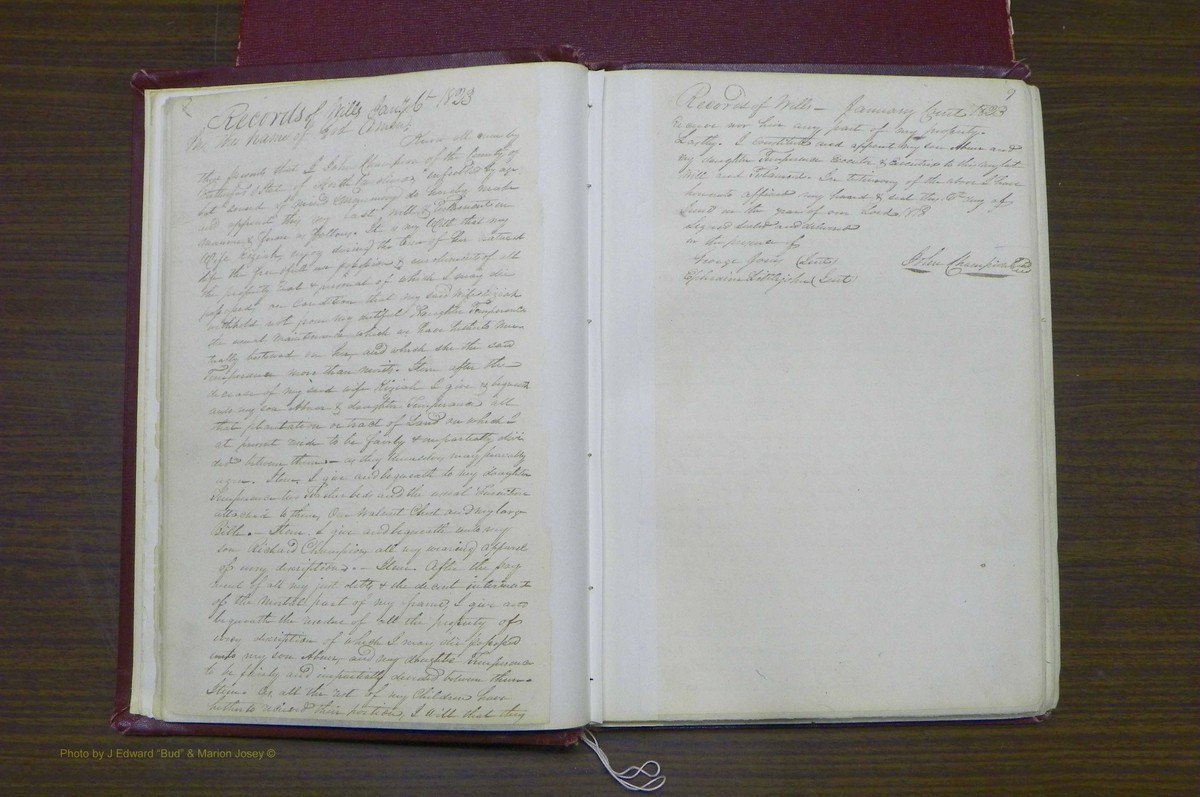 2
Records of Wills Jany 6th 1823
In the name of God Amen
Know all men by
these presents that I John Champion of the County of
Rutherford & State of North Carolina, infected by age
but sound of mind & memory do hereby make
and appoint this my last Will & Testament in
manner & form as follows. It is my Will that my
Wife Keziah enjoy during the term of her natural
life the possession & emoluments of all
the property real & personal of which I may die
possessed on condition that my said wife Keziah
withhold not from my dutiful Daughter Temperance
the usual maintenance which we have hitherto mu-
tually bestowed on her, and which she the said
Temperance more than merits. Item after the
decease of my said wife Keziah I give & bequeath
unto my son Abner & daughter Temperance all
that plantation or tract of Land on which I
at present reside to be fairly & impartially divi
ded between them as they themselves may peaceably
agree. Item I give and bequeath to my daughter
Temperance two Feather beds and the usual furniture
attached to them, One Walnut Chest and my large
Bible. – Item. I give and bequeath unto my
son Richard Champion all my wearing apparel
of every description. – Item. After the pay
ment of all my just debts & the decent interment
of the Mortal part of my frame, I give and
bequeath the residue of all the property of
every discription of which I may die possessed
unto my son Abner, and my daughter Temperance
to be fairly and impartially divided between them –
Item. As all the rest of my Children have
hitherto received their portions, I Will that they
Records of Wills – January 1823
Receive nor have any part of my property.
Lastly. I constitute and appoint my son Abner and
my daughter Temperance Executor & Executrix to this my last
Will and Testament. In testimony of the above I have
hereunto affixed my hand & seal this day of
in the year of our Lord
Signed sealed and delivered
in the presence of
George Jurat
Ephraim Littlejohn (Jurat)
John Champion (Seal)
Photo by J Edward "Bud" & Marion Josey ©